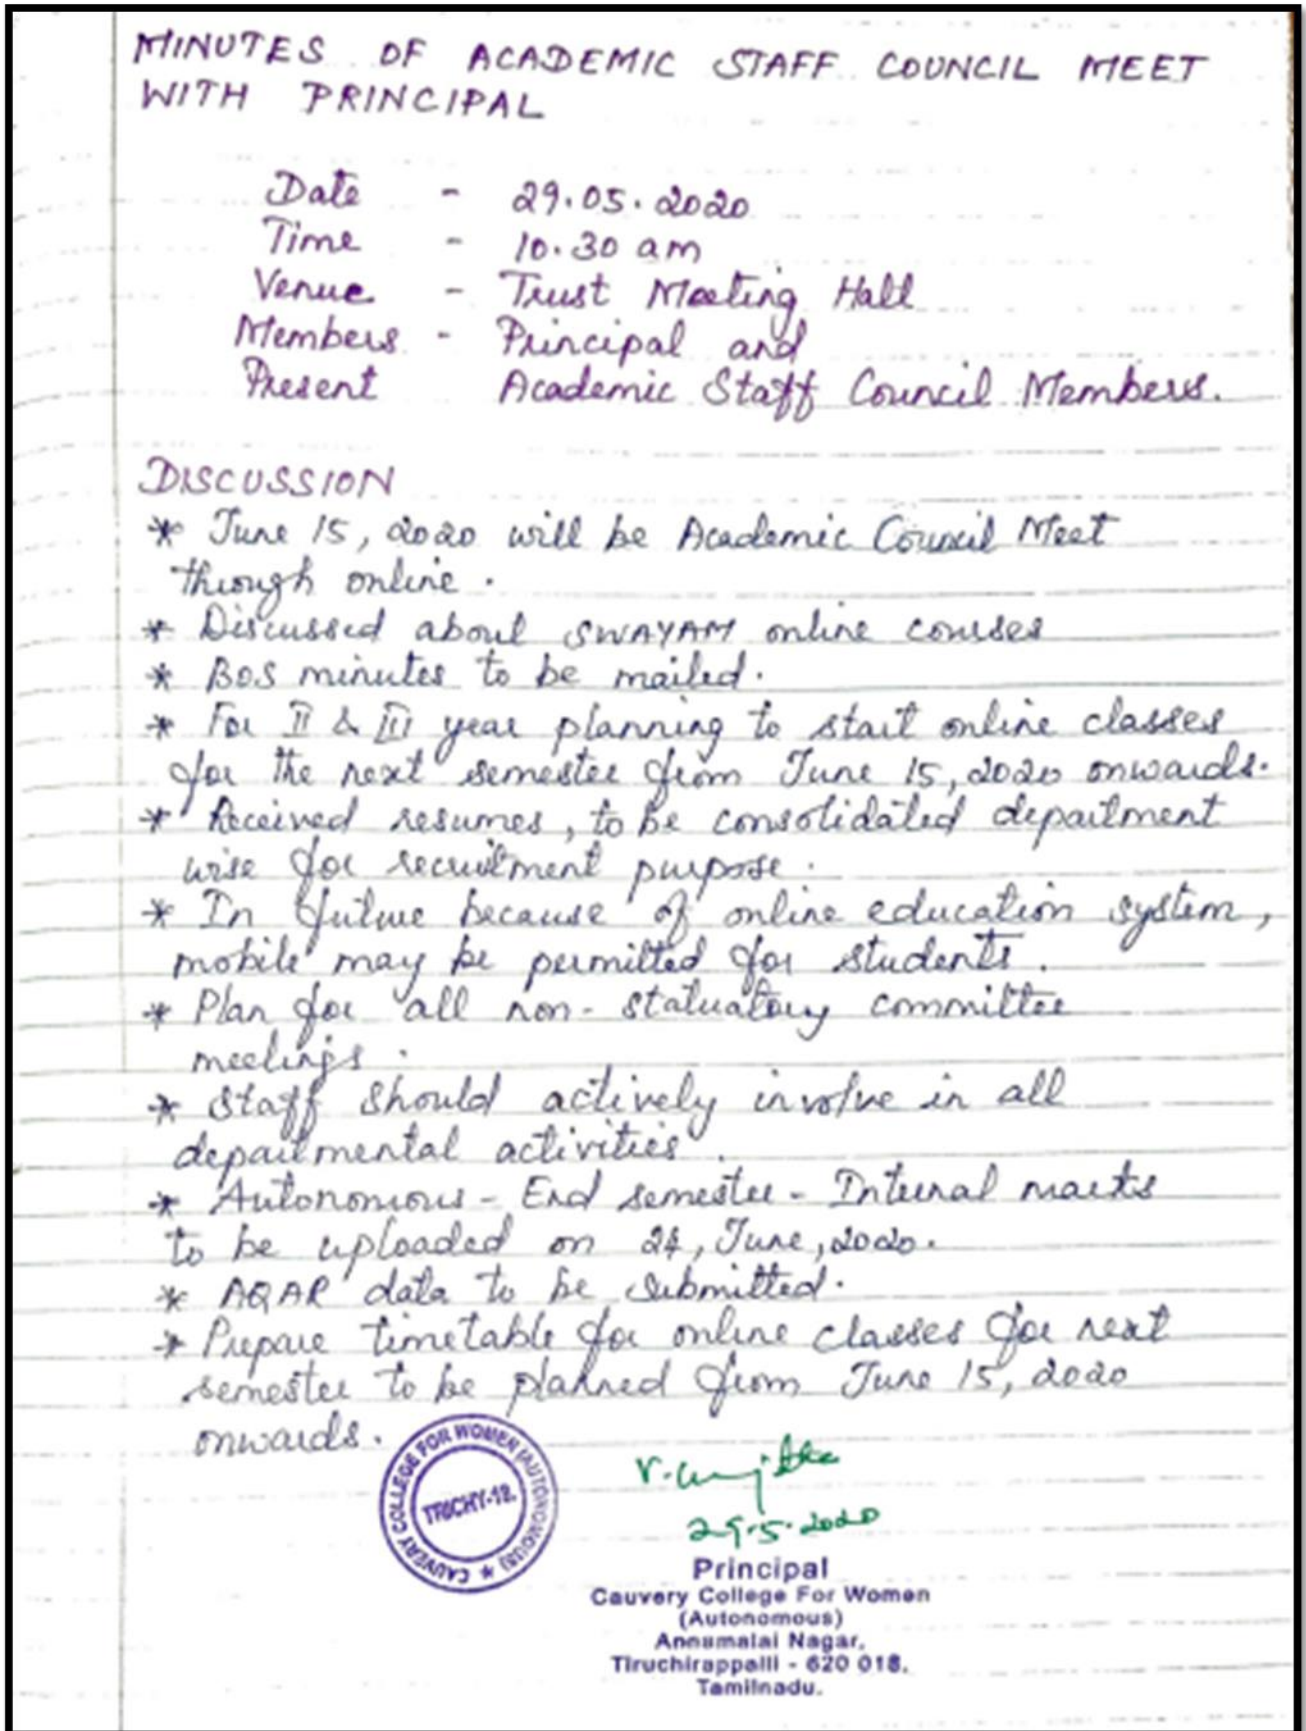 MINUTES OF ACADEMIC STAFF COUNCIL MEET
WITH PRINCIPAL
Date - 29.05.2020
Time - 10.30 am
Venue - Trust Meeting Hall
Members - Principal and
Present Academic Staff Council Members.
DISCUSSION
* June 15, 2020 will be Academic Council Meet
through online.
* Discussed about SWAYAM online courses
* BOS minutes to be mailed.
* For II & III year planning to start online classes
for the next semester from June 15, 2020 onwards.
* Received resumes, to be consolidated department
wise for recruitment purpose.
* In future because of online education system,
mobile may be permitted for students.
* Plan for all non-statuatory committee
meetings.
* Staff should actively involve in all
departmental activities.
* Autonomous - End semester - Internal marks
to be uploaded on 24, June, 2020.
* AQAR data to be submitted.
* Prepare timetable for online classes for next
semester to be planned from June 15, 2020
onwards.
CAUVERY COLLEGE FOR WOMEN (AUTONOMOUS) *
TRICHY-18.
29.5.2020
Principal
Cauvery College For Women
(Autonomous)
Annamalai Nagar,
Tiruchirappalli - 620 018,
Tamilnadu.